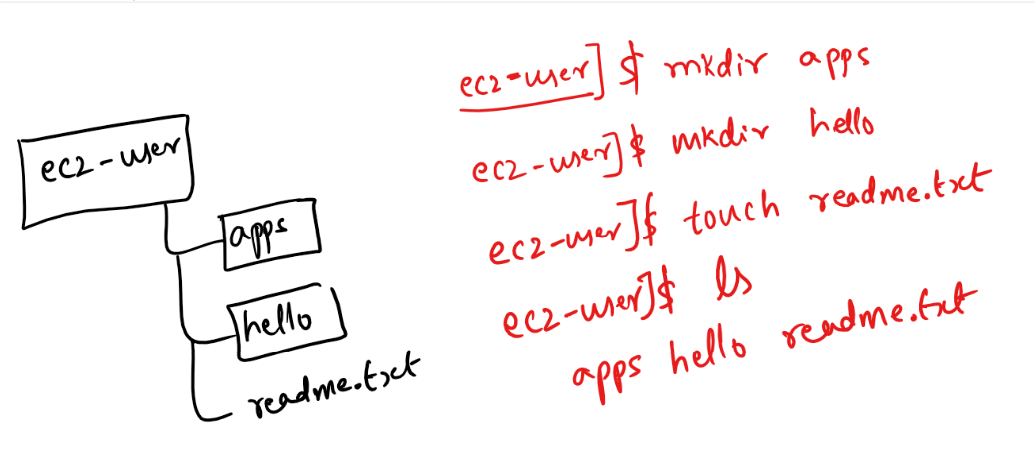 ec2-user
apps
hello
readme.txt
ec2-user]$ mkdir apps
ec2-user]$ mkdir hello
ec2-user]$ touch readme.txt
ec2-user]$ ls
apps hello readme.txt